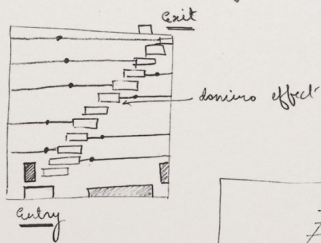 Exit
domino effect
Entry